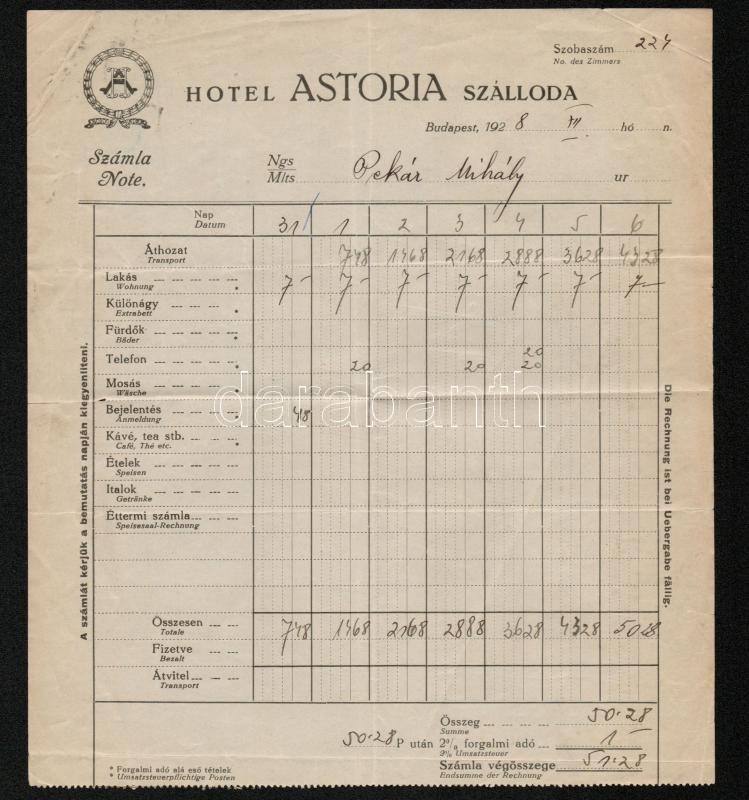 Szobaszám 224
No. des Zimmers
HOTEL ASTORIA SZÁLLODA
Budapest, 1928 VII hó n.
Számla
Note.
Ngs
Mlts
Pekár Mihály ur
Nap
Datum
31 1 2 3 4 5 6
Áthozat
Transport
748 1468 2168 2888 3628 4328
Lakás
Wohnung
7- 7- 7- 7- 7- 7- 7-
Különágy
Extrabett
Fürdők
Bäder
Telefon
20 20 20 20
Mosás
Wäsche
Bejelentés
Anmeldung
48
Kávé, tea stb.
Café, Thé etc.
Ételek
Speisen
Italok
Getränke
Éttermi számla
Speisesaal-Rechnung
Összesen
Totale
748 1468 2168 2888 3628 4328 5028
Fizetve
Bezalt
Átvitel
Transport
A számlát kérjük a bemutatás napján kiegyenlíteni.
Die Rechnung ist bei Uebergabe fällig.
Összeg
Summe
50·28
50·28 P után 2% forgalmi adó 1-
2% Umsatzsteuer
Számla végösszege 51·28
Endsumme der Rechnung
* Forgalmi adó alá eső tételek
* Umsatzsteuerpflichtige Posten
darabanth